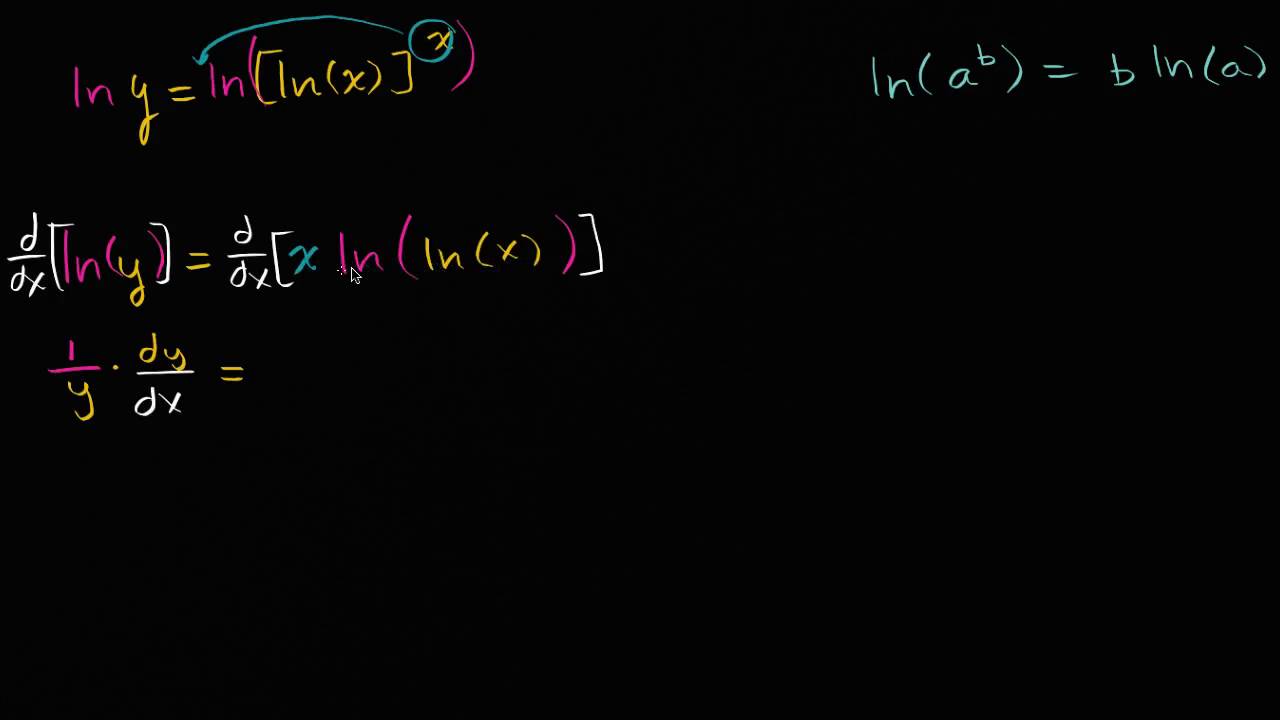 ln y = ln([ln(x)]^x)
ln(a^b) = b ln(a)
d/dx [ln(y)] = d/dx [x ln(ln(x))]
1/y · dy/dx =